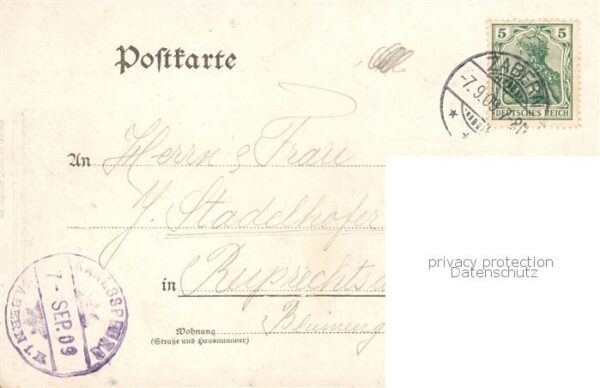 Postkarte
5
DEUTSCHES REICH
ZABERN
-7.9.09
An Herrn & Frau
J. Stadelhofer
in Ruprechts
Wohnung
(Straße und Hausnummer)
KARLSSPRUNG
7- SEP. 09
ZABERN i.
privacy protection
Datenschutz